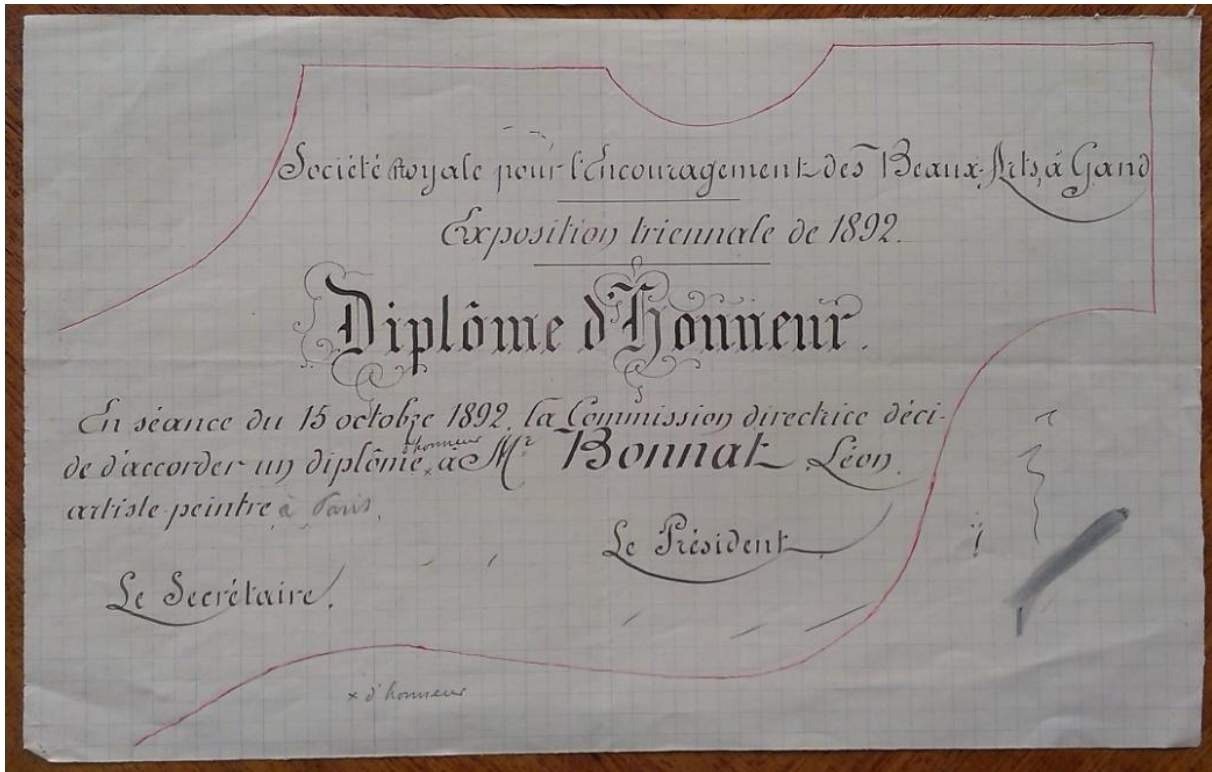 Société Royale pour l'Encouragement des Beaux-Arts, à Gand
Exposition triennale de 1892.
Diplôme d'Honneur.
En séance du 15 octobre 1892, la Commission directrice déci-
d'honneur
de d'accorder un diplôme × à Mr Bonnat Léon.
artiste-peintre à Paris,
Le Président
Le Secrétaire.
× d'honneur